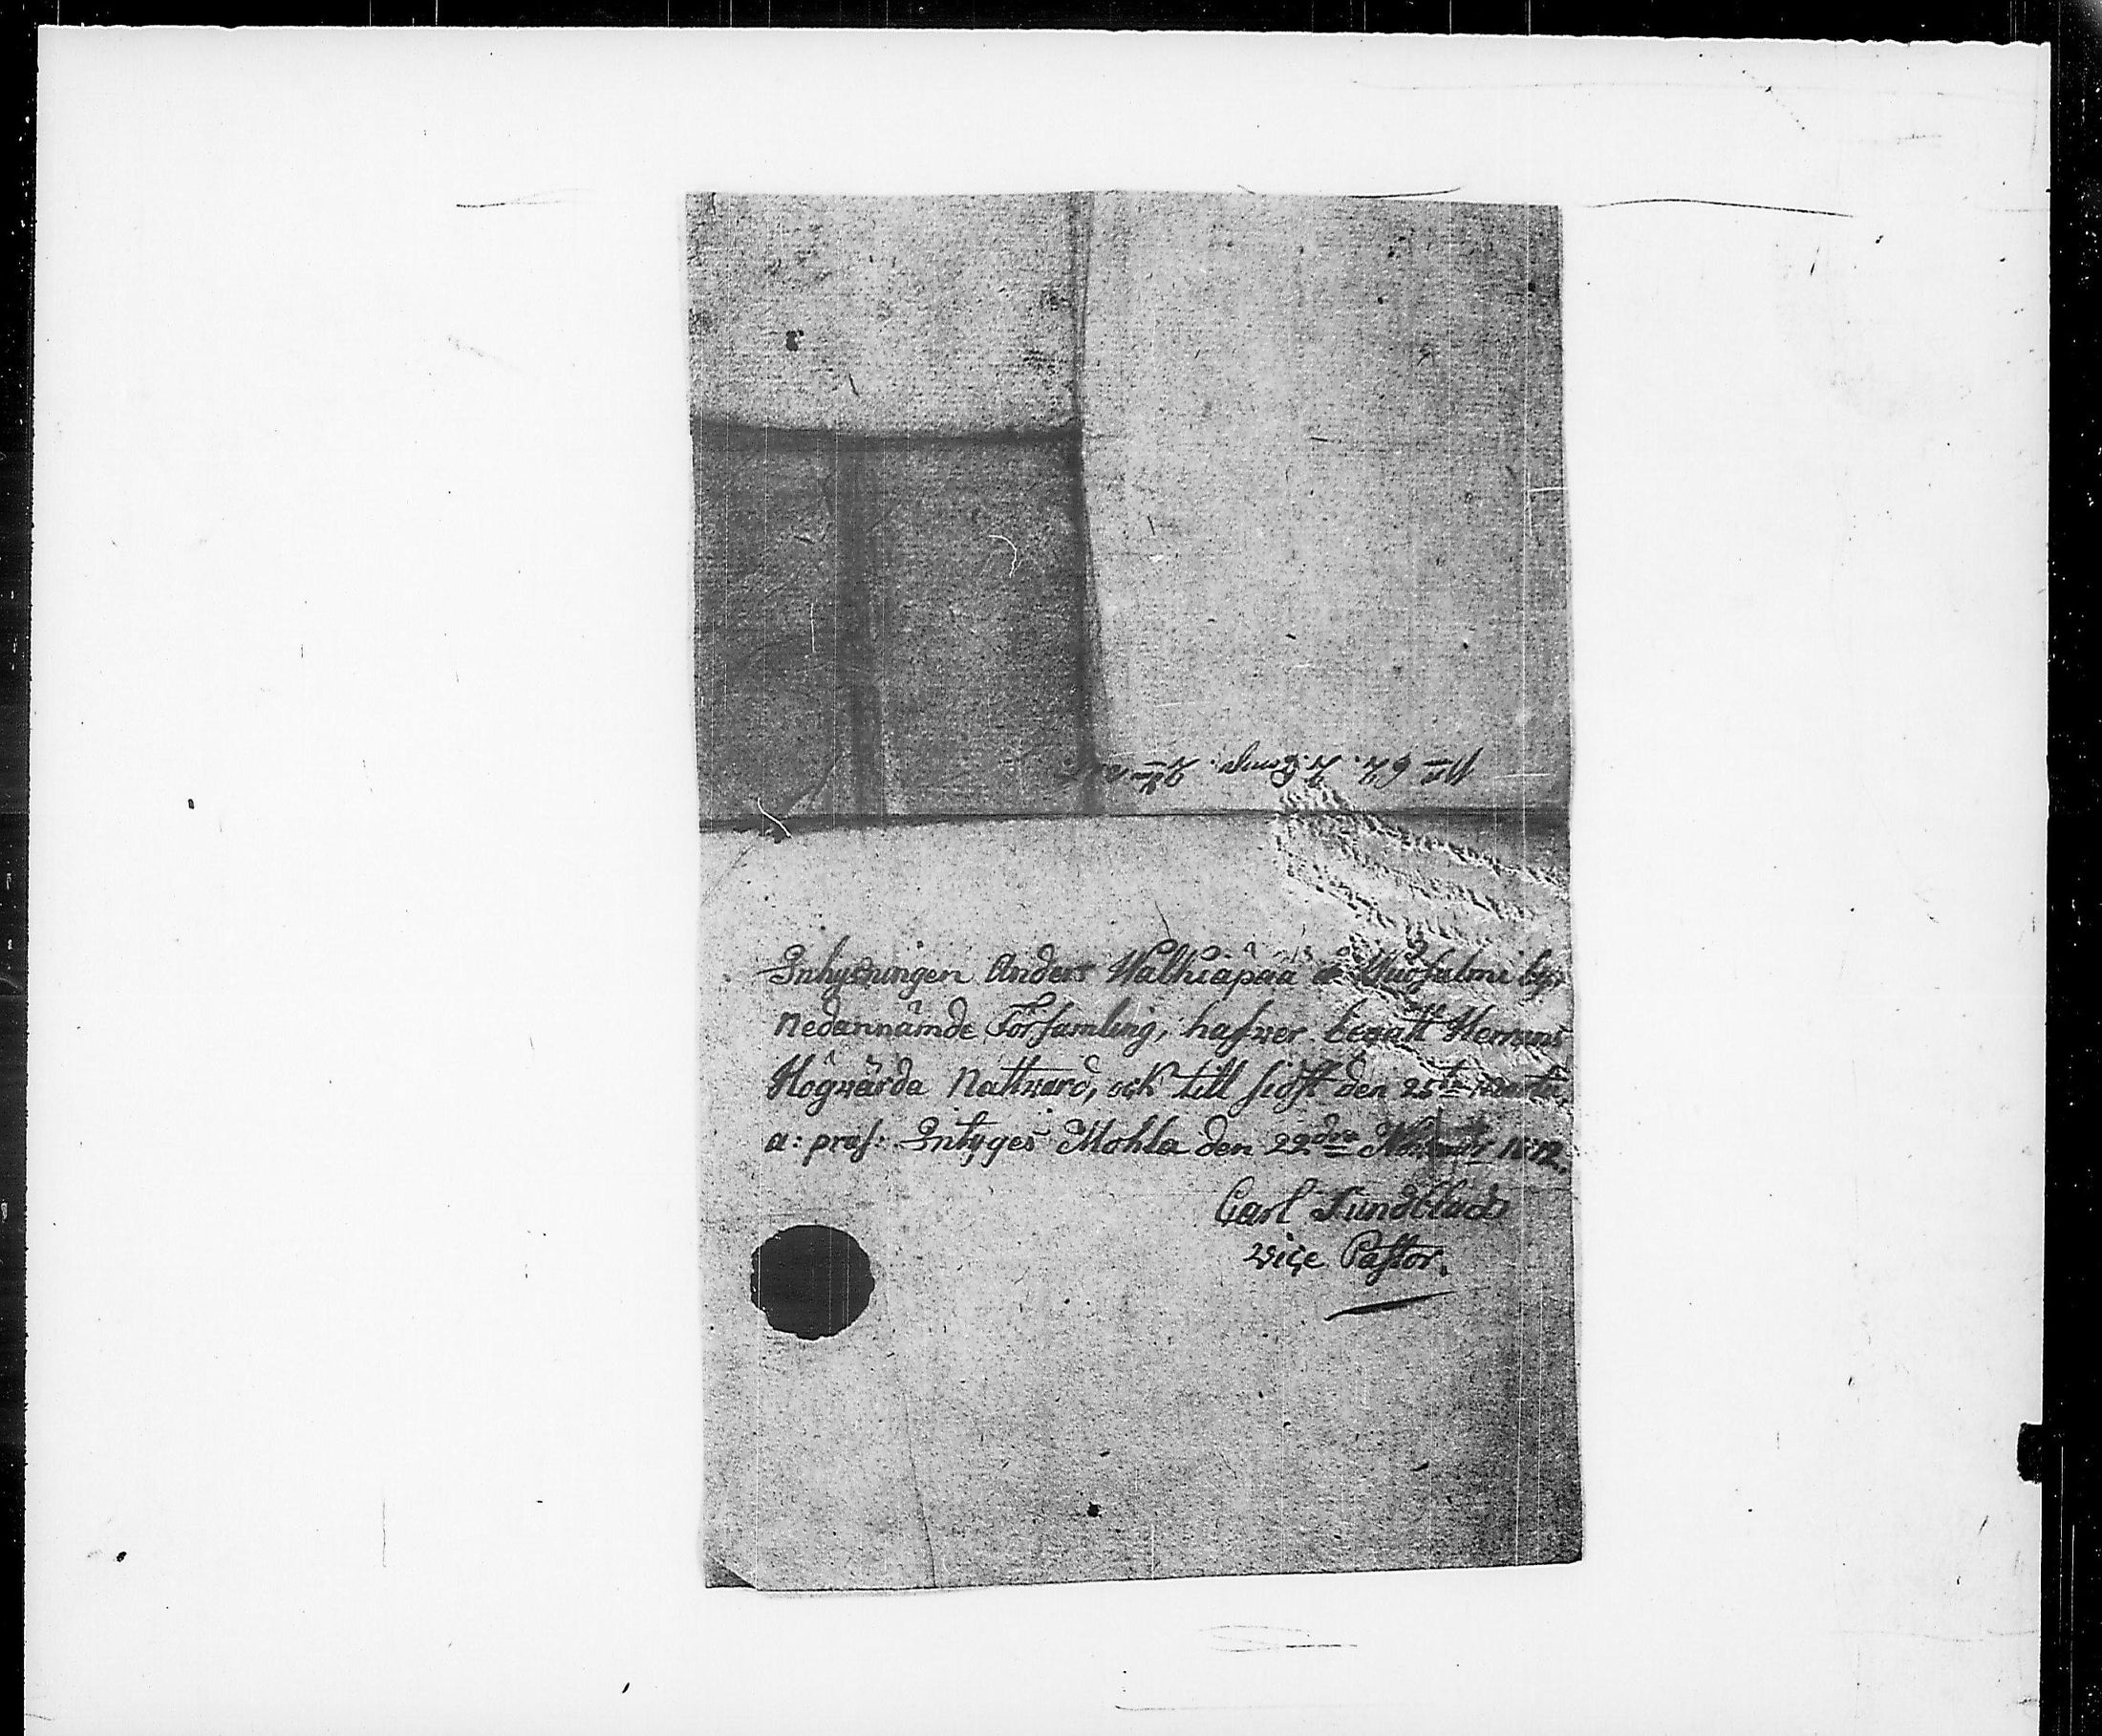 Inhysningen Anders Walkiapää
Nedannämde Församling, hafwer begått Herrans
Högwärda Nattward, ock till sidst den 25te Martii
a: præs: Intyges Mohla den 22dra 1812.
Carl Sundblad
vice Pastor.